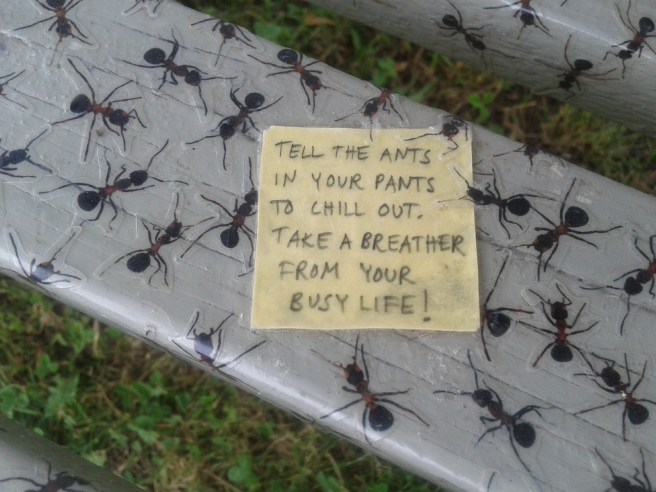 TELL THE ANTS
IN YOUR PANTS
TO CHILL OUT.
TAKE A BREATHER
FROM YOUR
BUSY LIFE!